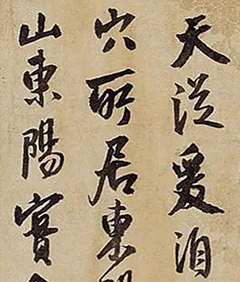 天從爰洎
穴所居東
山東陽實